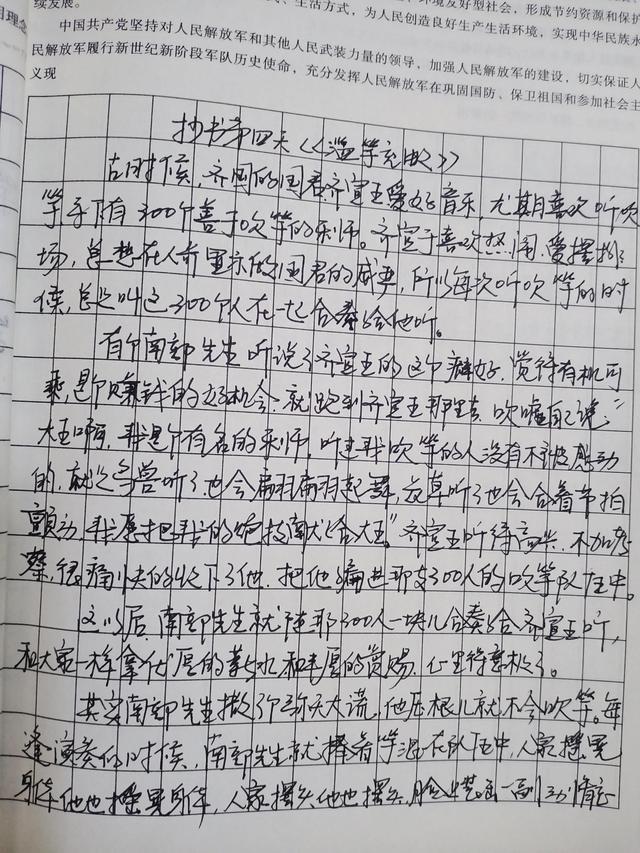 续发展。
生活方式，为人民创造良好生产生活环境，实现中华民族永
中国共产党坚持对人民解放军和其他人民武装力量的领导，加强人民解放军的建设，切实保证人
民解放军履行新世纪新阶段军队历史使命，充分发挥人民解放军在巩固国防、保卫祖国和参加社会主
义现
抄书第四天《滥竽充数》
古时候，齐国的国君齐宣王爱好音乐，尤其喜欢听吹
竽，手下有300个善于吹竽的乐师。齐宣王喜欢热闹，爱摆排
场，总想在人前显示做国君的威严，所以每次听吹竽的时
候，总是叫这300个人在一起合奏给他听。
有个南郭先生听说了齐宣王的这个癖好，觉得有机可
乘，是个赚钱的好机会，就跑到齐宣王那里去，吹嘘自己说：“
大王啊，我是个有名的乐师，听过我吹竽的人没有不被感动
的，就是鸟兽听了也会翩翩起舞，花草听了也会合着节拍
颤动，我愿把我的绝技献给大王。”齐宣王听得高兴，不加考
察，很痛快的收下了他，把他编进那支300人的吹竽队伍中。
这以后，南郭先生就随那300人一块儿合奏给齐宣王听，
和大家一样拿优厚的薪水和丰厚的赏赐，心里得意极了。
其实南郭先生撒了个弥天大谎，他压根儿就不会吹竽。每
逢演奏的时候，南郭先生就捧着竽混在队伍中，人家摇晃
身体他也摇晃身体，人家摆头他也摆头，脸上装出一副动情忘